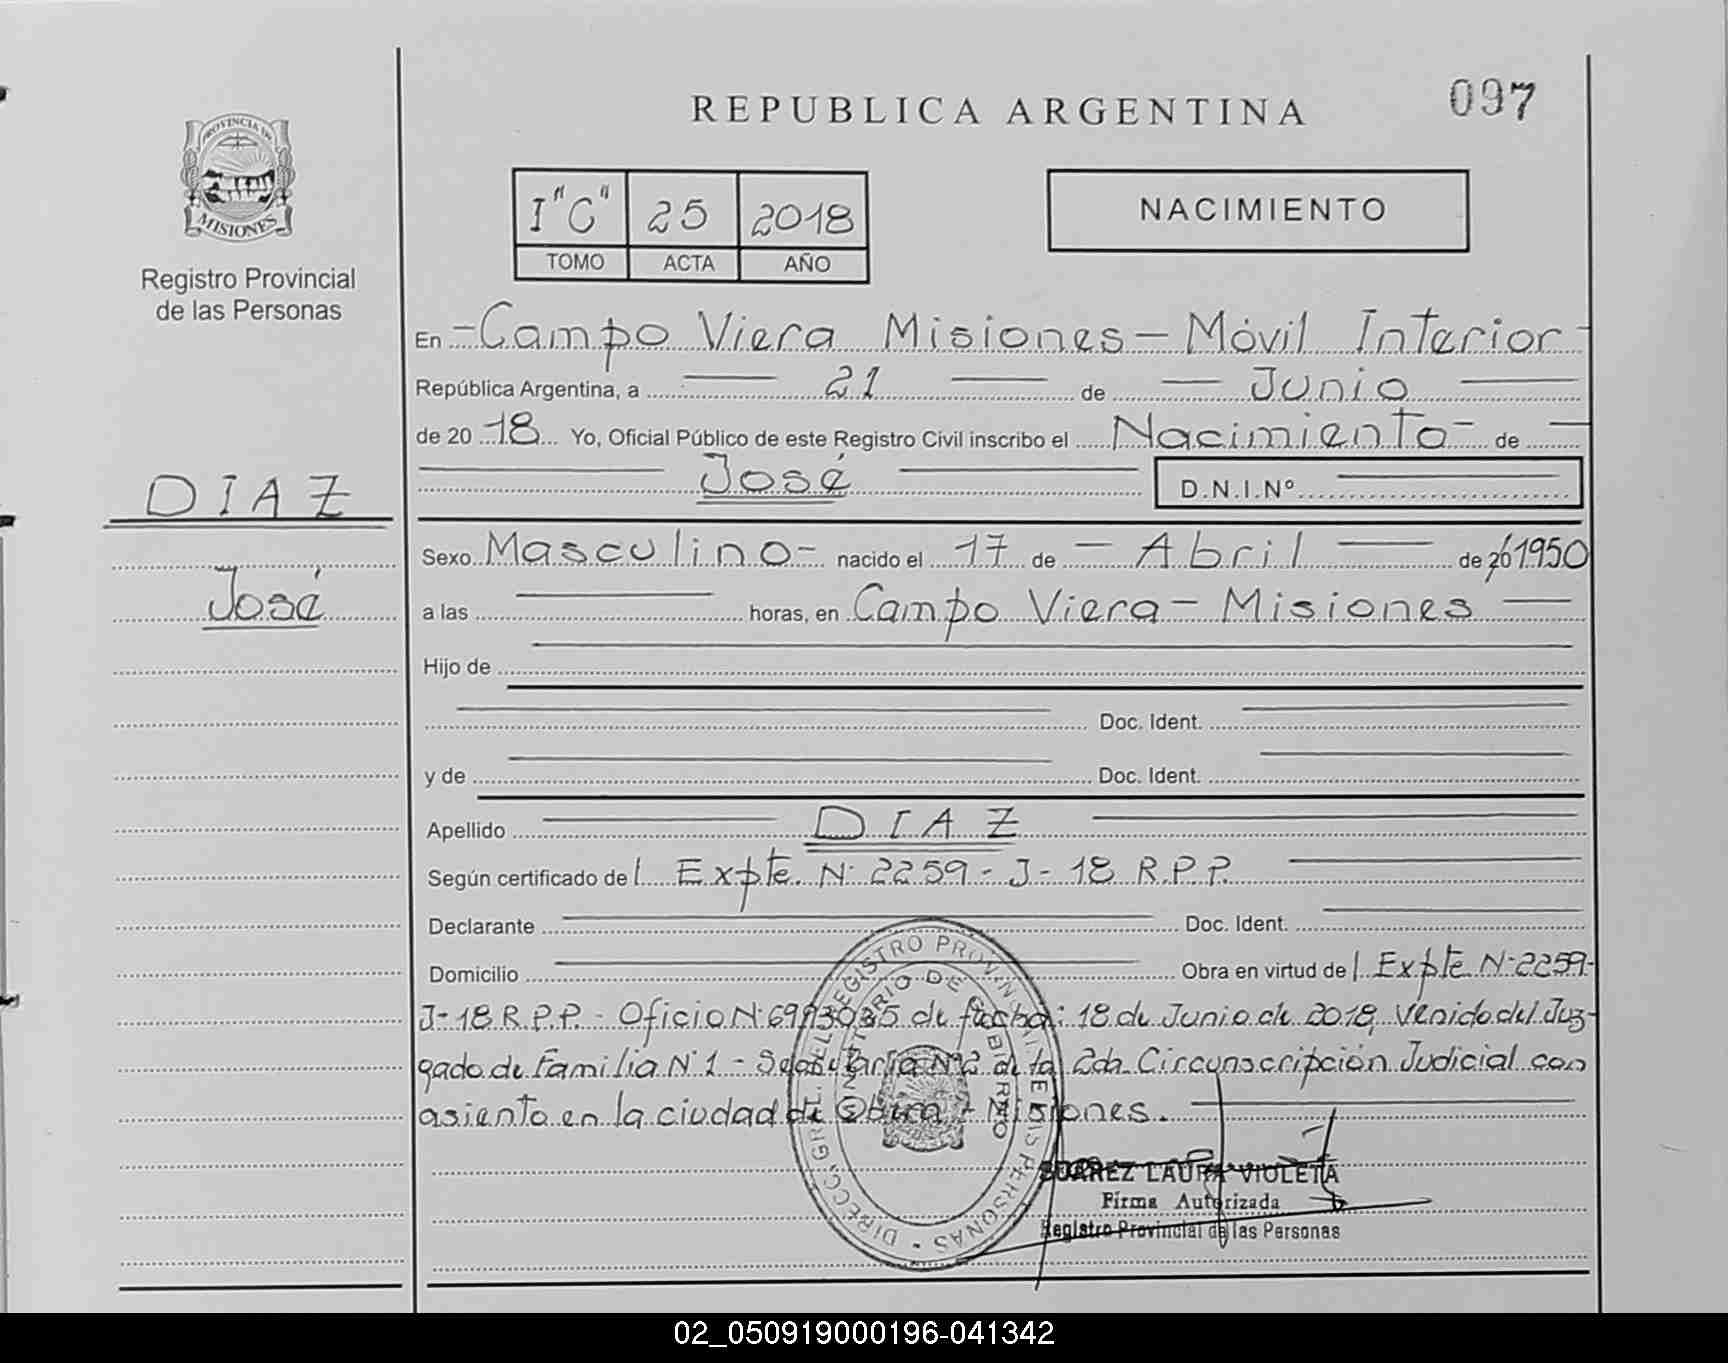 REPUBLICA ARGENTINA
097
PROVINCIA DE
MISIONES
Registro Provincial
de las Personas
I "C" 25 2018
TOMO ACTA AÑO
NACIMIENTO
En - Campo Viera Misiones - Móvil Interior -
República Argentina, a 21 de Junio
de 20 18 Yo, Oficial Público de este Registro Civil inscribo el Nacimiento - de
José D.N.I.Nº
DIAZ
José
Sexo Masculino - nacido el 17 de - Abril de 20 1950
a las horas, en Campo Viera - Misiones
Hijo de
Doc. Ident.
y de Doc. Ident.
Apellido DIAZ
Según certificado de l Expte. Nº 2259 - J - 18 R.P.P.
Declarante Doc. Ident.
Domicilio Obra en virtud de l Expte Nº 2259-
J-18 R.P.P. - Oficio Nº de fecha: 18 de Junio de 2018, venido del Juz-
gado de Familia Nº 1 - Secretaría Nº 2 de la 2da Circunscripción Judicial con
asiento en la ciudad de Oberá - Misiones.
DIRECC. GRAL. DEL REGISTRO PROVINCIAL DE LAS PERSONAS
MINISTERIO DE GOBIERNO
SUAREZ LAURA VIOLETA
Firma Autorizada
Registro Provincial de las Personas
02_050919000196-041342